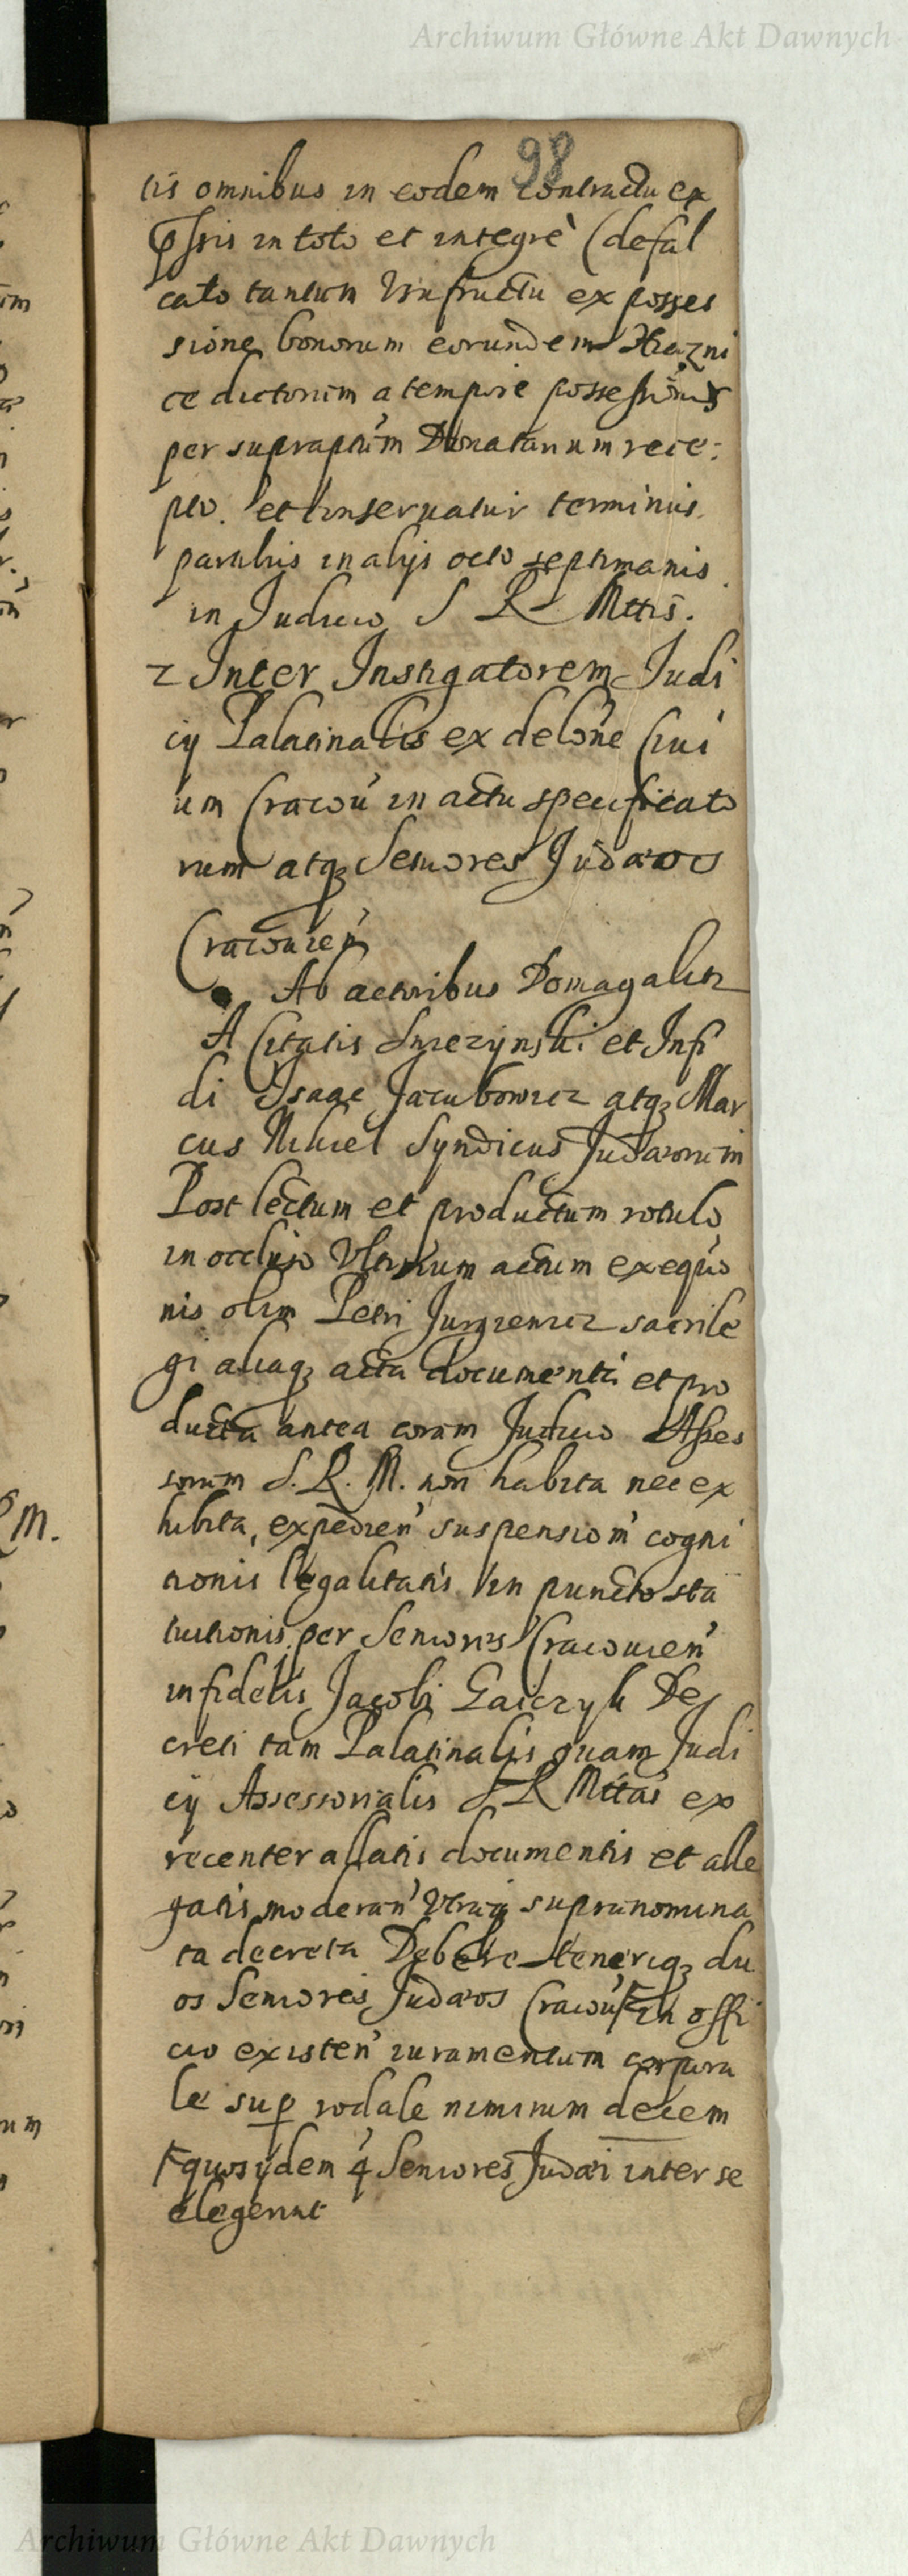 Archiwum Główne Akt Dawnych
98
tis omnibus in eodem contractu ex
pssis in toto et integrè (defal
cato tantum Vsufructu ex posses
sione bonorum eorundem
ce dictorum a tempore possessionis
per supraptum Donatarium rece:
pto. et conservatur terminus
partibus in alijs octo septimanis
in Judicio S R Mttis.
2 Inter Instigatorem Judi
cij Palatinalis ex delõne Civi
um Cracou in actu specificato
rum atq Seniores Judæos
Cracouien
Ab actoribus Domagalicz
A Citatis et Infi
di Isaac Jacubowicz atq Mar
cus Syndicus Judæorum
Post lectum et productum rotulo
in occluso Vltimum actum exeqūo
nis olim Petri sacrile
gi aliaq acta documenta et pro
ducta antea coram Judicio Asses
sorum S. R. M. non habita nec ex
hibita, expedien suspension cogni
tionis legalitatis in puncto sta
tuitionis per Seniores Cracouien
infidelis Jacobi De
creti tam Palatinalis quam Judi
cij Assessorialis S R Mttis ex
recenter allatis documentis et alle
gatis moderan Vtraq supranomina
ta decreta Debere teneriq du
os Seniores Judæos Cracou in offi
cio existen iuramentum corpora
le sup rodale nimirum decem
quosydem 4 Seniores Judæi inter se
elegerint
M.
um
Archiwum Główne Akt Dawnych